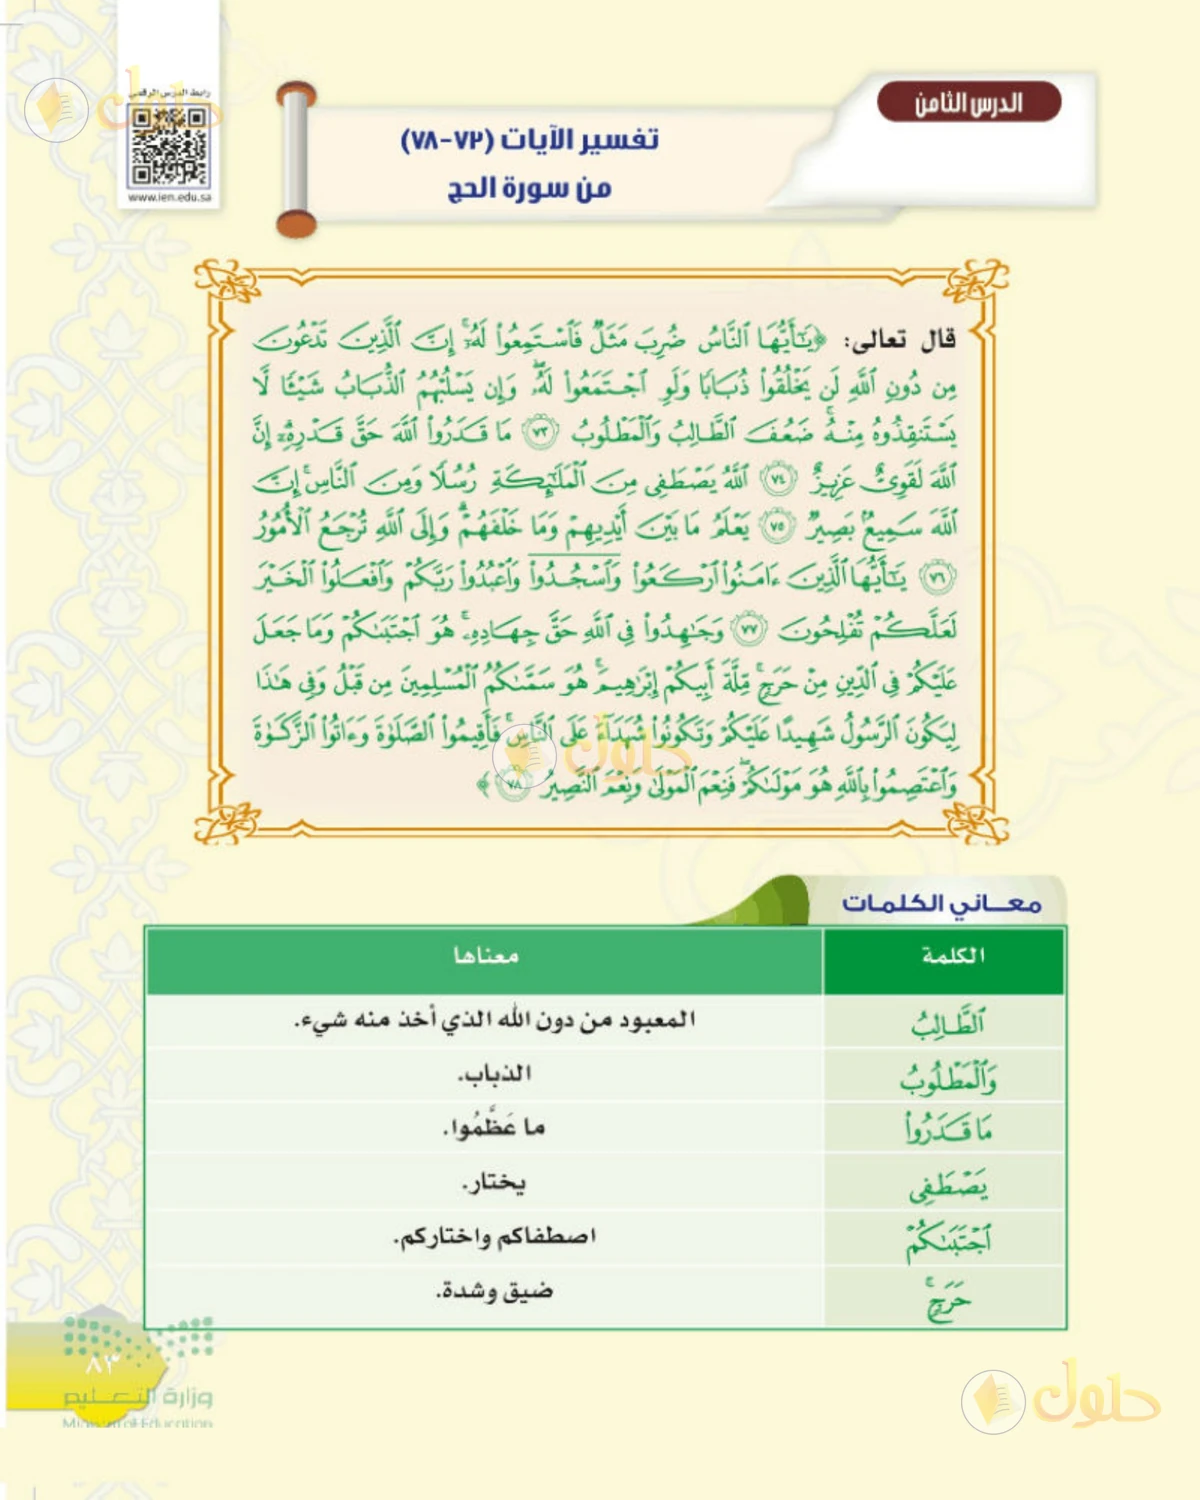 رابط الدرس الرقمي
حلول
www.ien.edu.sa
الدرس الثامن
تفسير الآيات (٧٢-٧٨)
من سورة الحج
قال تعالى: ﴿يَٰٓأَيُّهَا ٱلنَّاسُ ضُرِبَ مَثَلٌ فَٱسْتَمِعُوا۟ لَهُۥٓ ۚ إِنَّ ٱلَّذِينَ تَدْعُونَ
مِن دُونِ ٱللَّهِ لَن يَخْلُقُوا۟ ذُبَابًا وَلَوِ ٱجْتَمَعُوا۟ لَهُۥ ۖ وَإِن يَسْلُبْهُمُ ٱلذُّبَابُ شَيْـًٔا لَّا
يَسْتَنقِذُوهُ مِنْهُ ۚ ضَعُفَ ٱلطَّالِبُ وَٱلْمَطْلُوبُ ٧٣ مَا قَدَرُوا۟ ٱللَّهَ حَقَّ قَدْرِهِۦٓ ۗ إِنَّ
ٱللَّهَ لَقَوِىٌّ عَزِيزٌ ٧٤ ٱللَّهُ يَصْطَفِى مِنَ ٱلْمَلَٰٓئِكَةِ رُسُلًا وَمِنَ ٱلنَّاسِ ۚ إِنَّ
ٱللَّهَ سَمِيعٌۢ بَصِيرٌ ٧٥ يَعْلَمُ مَا بَيْنَ أَيْدِيهِمْ وَمَا خَلْفَهُمْ ۗ وَإِلَى ٱللَّهِ تُرْجَعُ ٱلْأُمُورُ
٧٦ يَٰٓأَيُّهَا ٱلَّذِينَ ءَامَنُوا۟ ٱرْكَعُوا۟ وَٱسْجُدُوا۟ وَٱعْبُدُوا۟ رَبَّكُمْ وَٱفْعَلُوا۟ ٱلْخَيْرَ
لَعَلَّكُمْ تُفْلِحُونَ ٧٧ وَجَٰهِدُوا۟ فِى ٱللَّهِ حَقَّ جِهَادِهِۦ ۚ هُوَ ٱجْتَبَىٰكُمْ وَمَا جَعَلَ
عَلَيْكُمْ فِى ٱلدِّينِ مِنْ حَرَجٍ ۚ مِّلَّةَ أَبِيكُمْ إِبْرَٰهِيمَ ۚ هُوَ سَمَّىٰكُمُ ٱلْمُسْلِمِينَ مِن قَبْلُ وَفِى هَٰذَا
لِيَكُونَ ٱلرَّسُولُ شَهِيدًا عَلَيْكُمْ وَتَكُونُوا۟ شُهَدَآءَ عَلَى ٱلنَّاسِ ۚ فَأَقِيمُوا۟ ٱلصَّلَوٰةَ وَءَاتُوا۟ ٱلزَّكَوٰةَ
وَٱعْتَصِمُوا۟ بِٱللَّهِ هُوَ مَوْلَىٰكُمْ ۖ فَنِعْمَ ٱلْمَوْلَىٰ وَنِعْمَ ٱلنَّصِيرُ ٧٨﴾
حلول
معـــاني الكلمـات
الكلمة معناها
ٱلطَّالِبُ المعبود من دون الله الذي أخذ منه شيء.
وَٱلْمَطْلُوبُ الذباب.
مَا قَدَرُوا۟ ما عَظَّمُوا.
يَصْطَفِى يختار.
ٱجْتَبَىٰكُمْ اصطفاكم واختاركم.
حَرَجٍ ۚ ضيق وشدة.
٨٣
وزارة التعـــليم
Ministry of Education
حلول